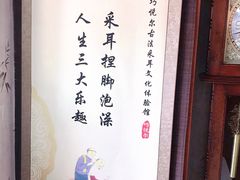 巧悦尔古法采耳文化体验馆
采耳捏脚泡澡
人生三大乐趣